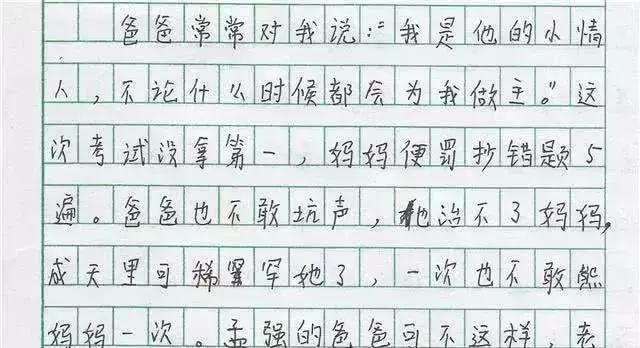 爸爸常常对我说:“我是他的小情
人,不论什么时候都会为我做主。”这
次考试没拿第一,妈妈便罚抄错题5
遍。爸爸也不敢坑声,他治不了妈妈,
成天里可稀罕她了,一次也不敢熊
妈妈一次。孟强的爸爸可不这样,老